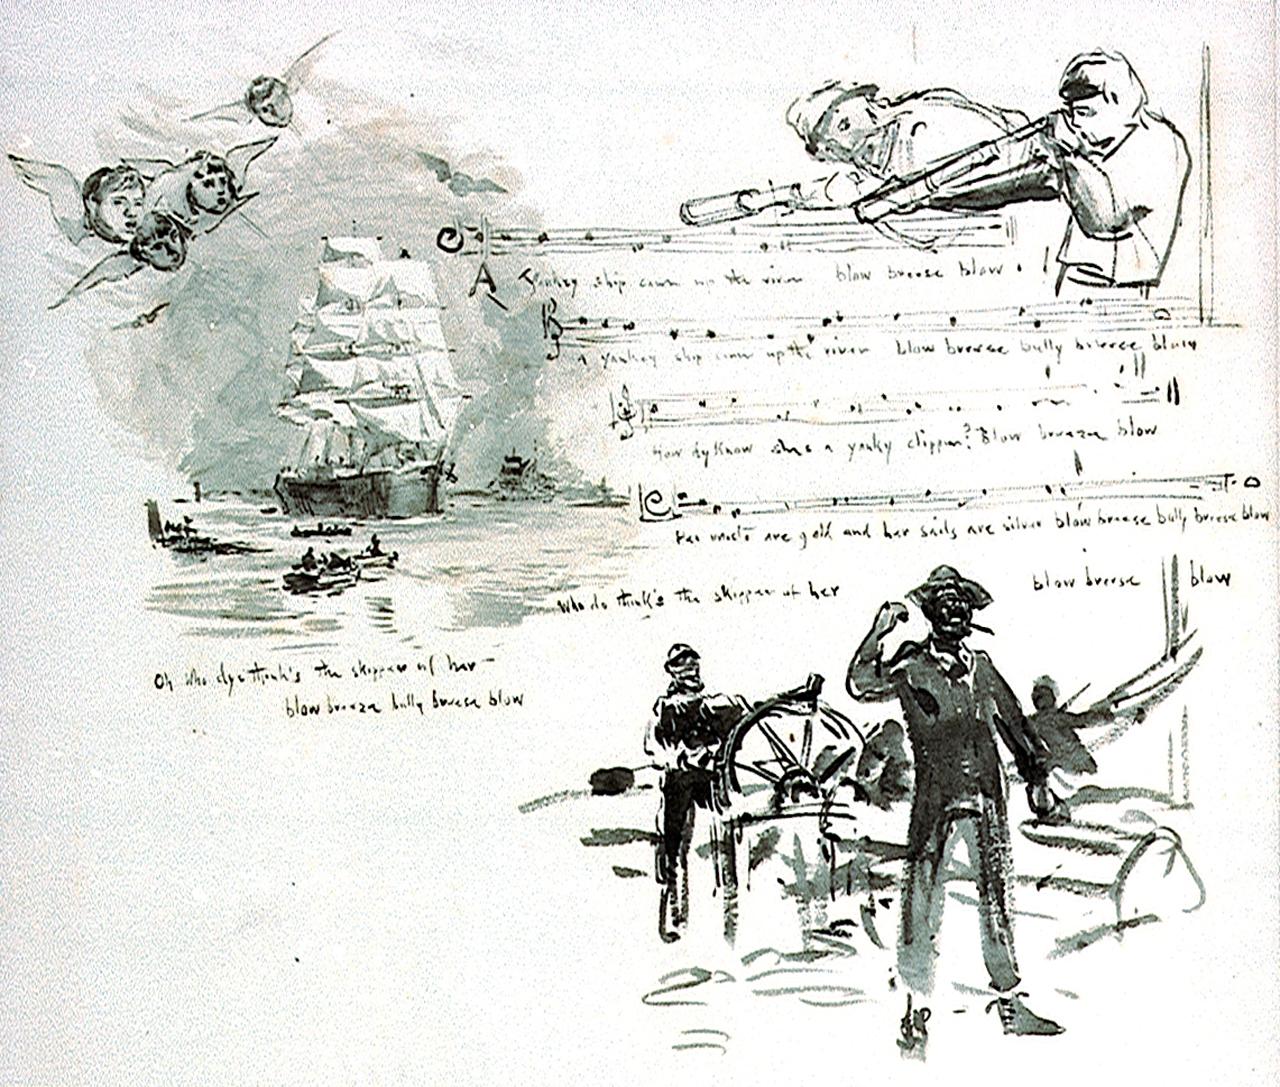 A Yankey ship came up the river blow breese blow.
A yankey ship came up the river blow breese bully breese blow
How dyKnow shes a yanky clipper? Blow breeze blow
Her masts are gold and her sails are silver blow breese bully breese blow
who do think's the skipper of her blow breese blow
Oh who dye think's the skipper of her
blow breeze bully breese blow